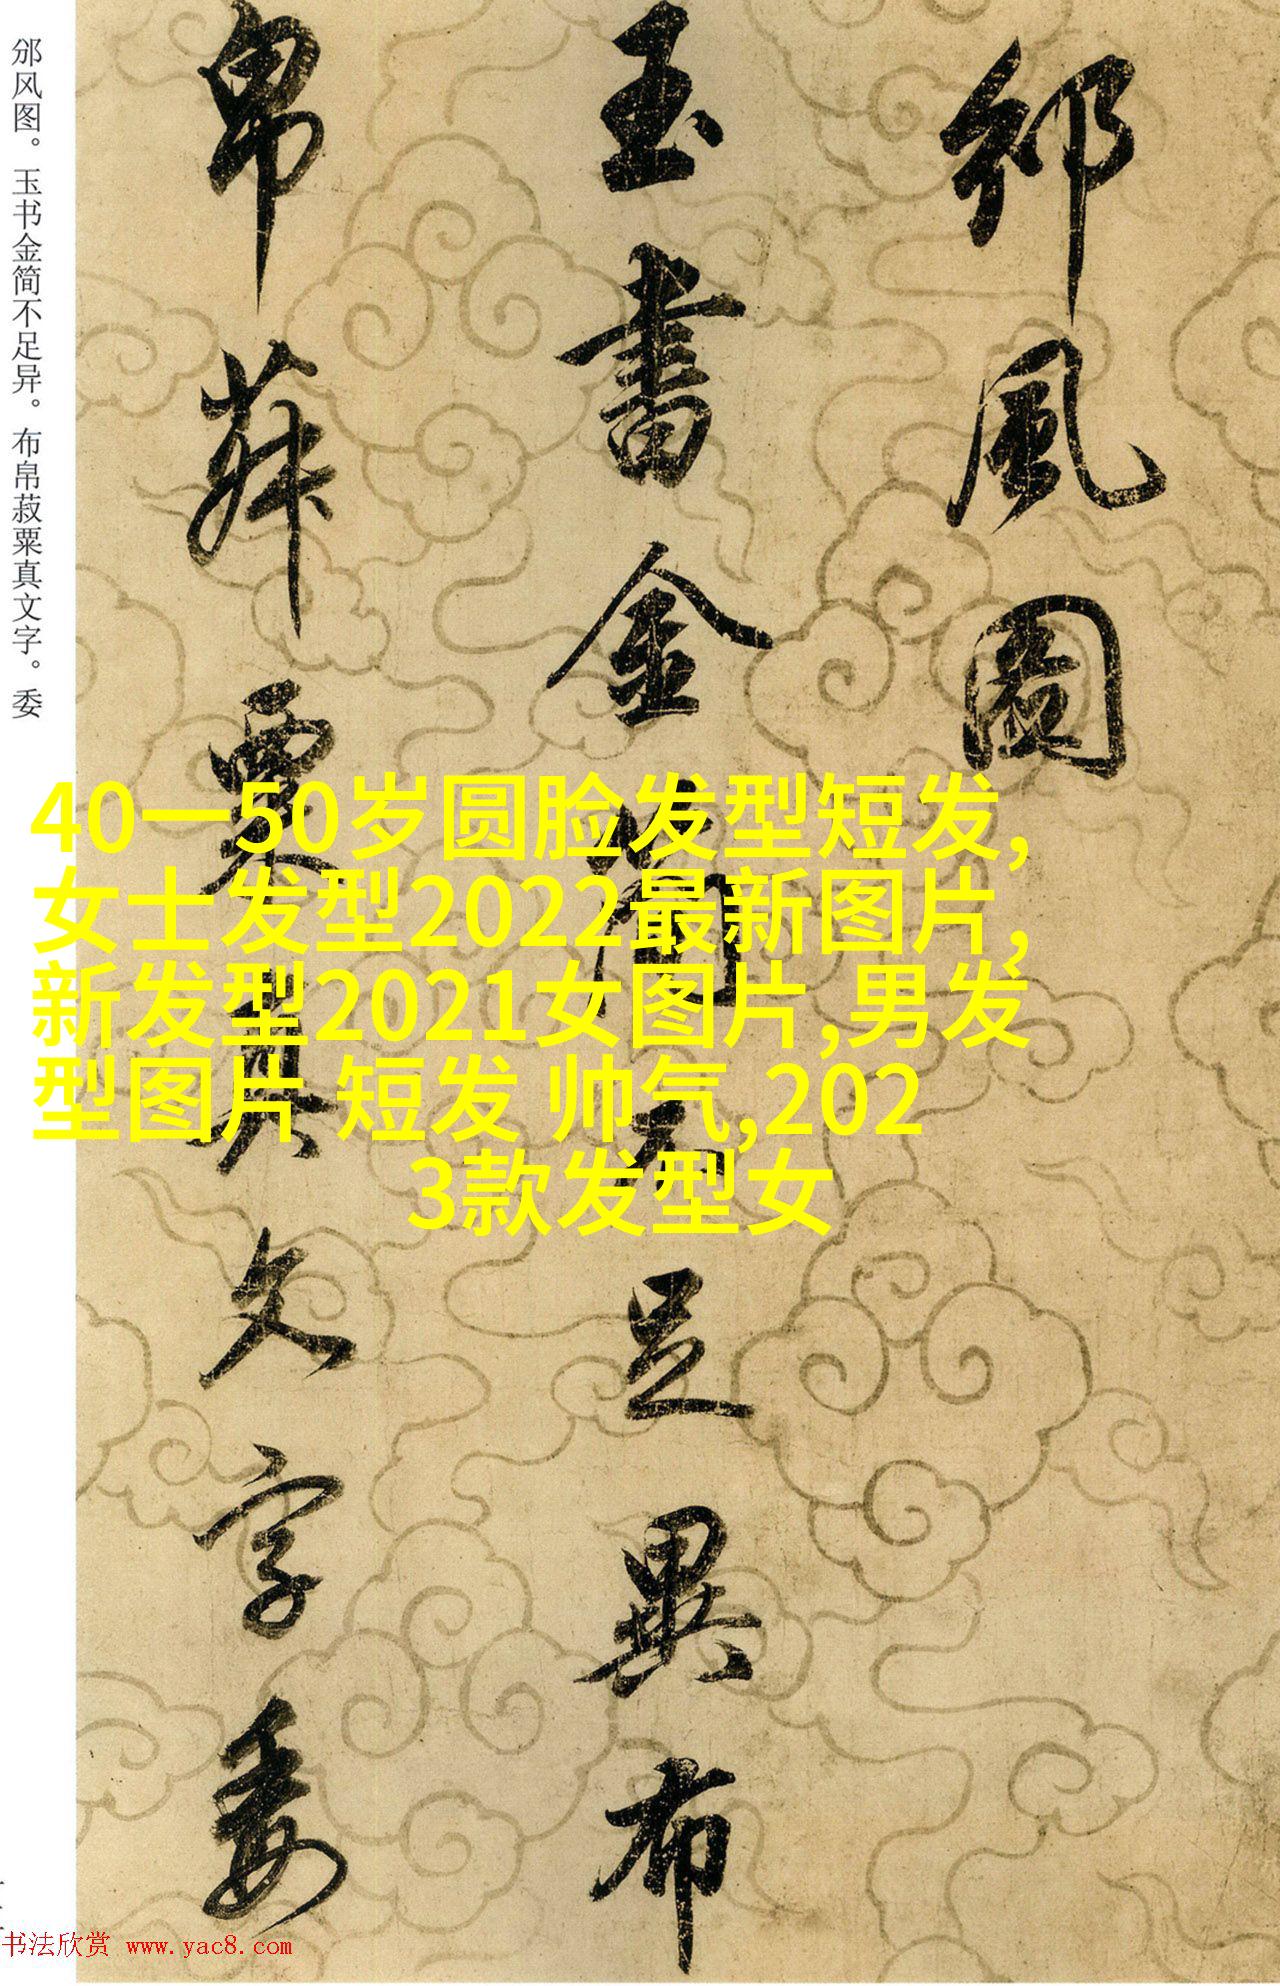 邠風圖
玉書金簡不足異布
帛菽粟真文字委
邠风图。玉书金简不足异。布帛菽粟真文字。委
40一50岁圆脸发型短发,
女士发型2022最新图片,
新发型2021女图片,男发
型图片 短发 帅气,202
3款发型女
书法欣赏 www.yac8.com